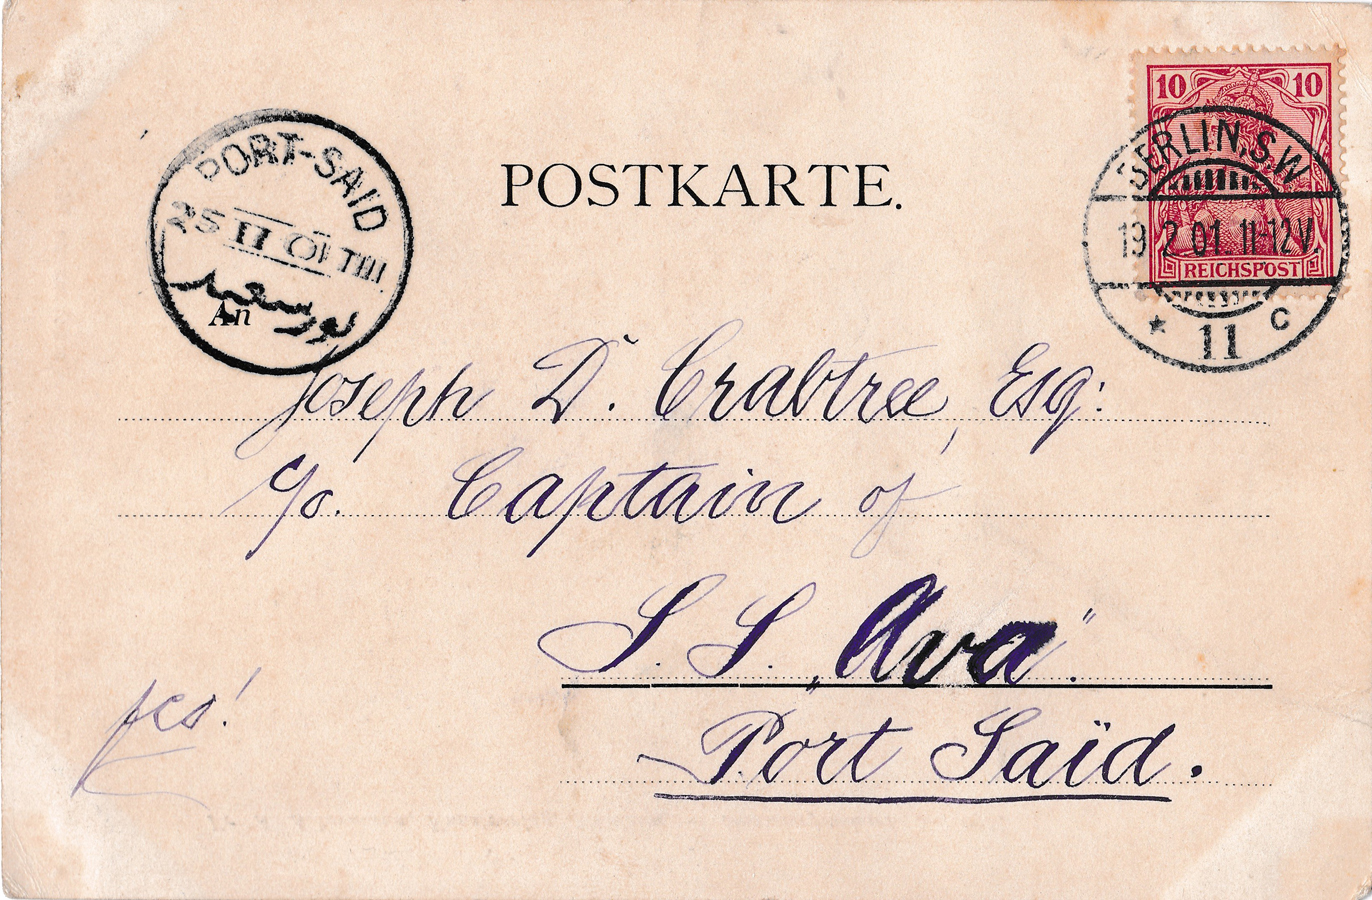 POSTKARTE.
10 10
REICHSPOST
BERLIN.S.W
19 2 01. 11-12V.
* 11 c
PORT-SAID
25 II 01 T III
بور سعيد
An
Joseph D. Crabtree, Esq:
c/o. Captain of
S. S. „Ava".
Port Saïd.